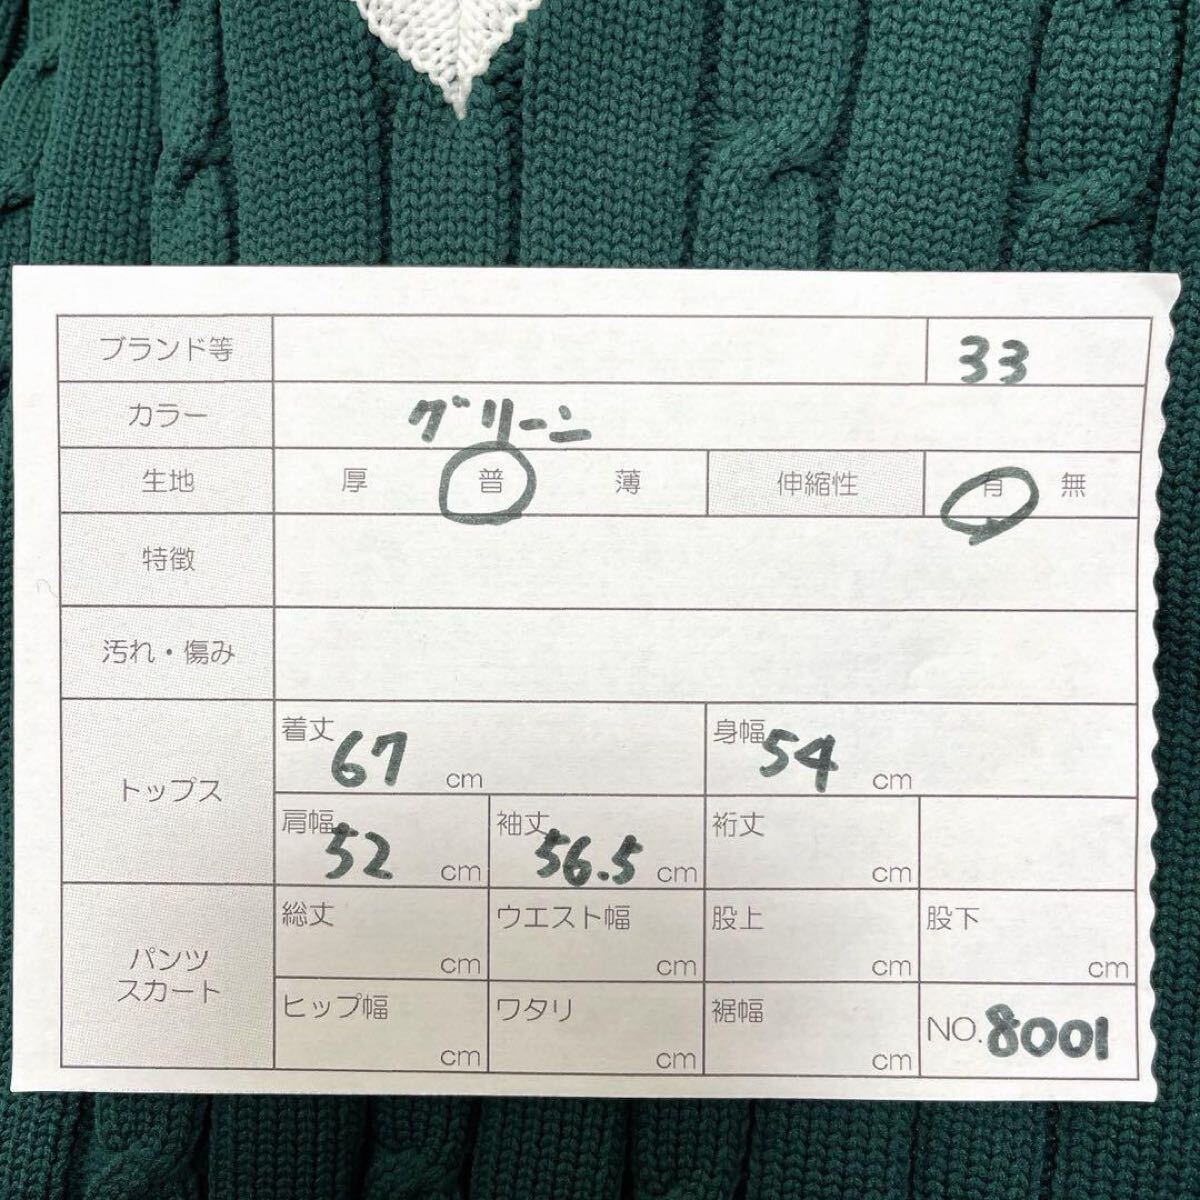 ブランド等 33
カラー グリーン
生地 厚 普 薄 伸縮性 有 無
特徴
汚れ・傷み
トップス
着丈 67 cm 身幅 54 cm
肩幅 52 cm 袖丈 56.5 cm 裄丈 cm
パンツ
スカート
総丈 cm ウエスト幅 cm 股上 cm 股下 cm
ヒップ幅 cm ワタリ cm 裾幅 cm NO.8001